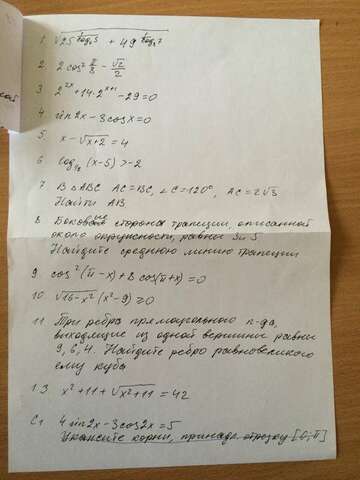 1. √25^(1/log₆5) + 49^(1/log₈7)
2. 2 cos² π/8 - √2/2
3 2^2x + 14·2^x+1 - 29 = 0
4 sin2x - 3cosx = 0
5. x - √x+2 = 4
6 log½ (x-5) > -2
7 В △ABC AC=BC, ∠C=120°, AC=2√3
Найти AB
8 Боковые стороны трапеции, описанной
около окружности, равны 3 и 5
Найдите среднюю линию трапеции
9 cos² (π-x) + 8 cos(π+x) = 0
10. √16-x² (x²-9) ≥ 0
11 Три ребра прямоугольного п-да,
выходящие из одной вершины равны
9, 6, 4. Найдите ребро равновеликого
ему куба
13 x² + 11 + √x²+11 = 42
C1 4sin2x - 3cos2x = 5
Укажите корни, принадл. отрезку [0; π]